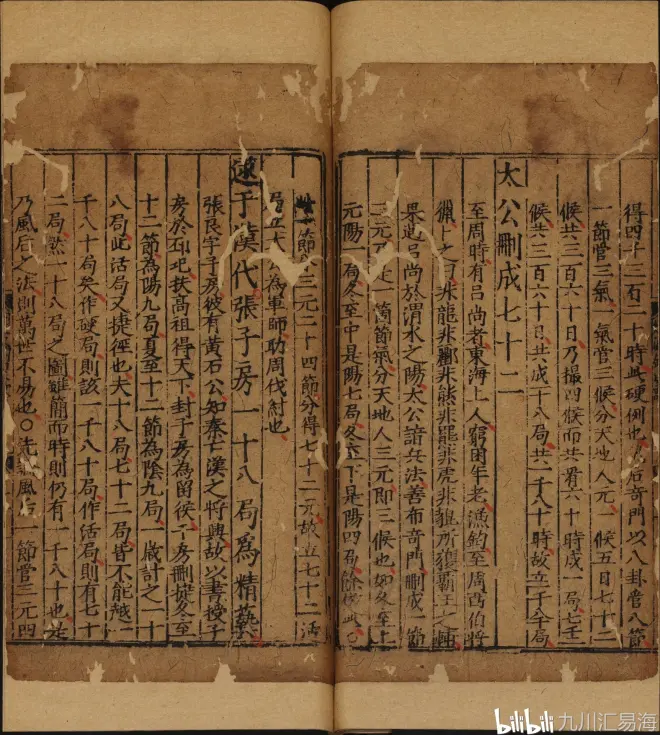 得四千三百二十時此硬例也 后奇門以八卦管八節
一節管三氣一氣管三候分天地人元 候五日七十二
候共三百六十日乃撮四候而共看六十時成一局七十二
候共三百六十日共成一十八局共一千八十時故立一千八十局
太公刪成七十二
至周時有呂尚者東海上人窮困年老漁釣至周西伯將
獵卜之曰非龍非彲非熊非羆非虎非貔所獲霸王之輔
果遇呂尚於渭水之陽太公諳兵法善布奇門刪成一節
三元 一箇節氣分天地人三元即三候也如冬至上
元陽一局冬至中 是陽七局冬至下 是陽四局餘倣此
一節 三元二十四節分得七十二元故立七十二活
局立太公為軍師助周伐紂也
逮于漢代張子房一十八局為精藝
張良字子房彼有黃石公知秦亡漢之將興故以書授子
房於圯圯扶高祖得天下封子房為留侯子房刪㨗冬至
十二節為陽九局夏至十二節為陰九局一歲計之一十
八局此活局又捷徑也夫十八局七十二局皆不能越一
千八十局矣作硬局則該一千八十局作活局則有七十
二局然一十八局之圖雖簡而時則仍有一千八十也是
乃風后之法則萬世不易也〇先 風后一節管三元四
bilibili 九川汇易海